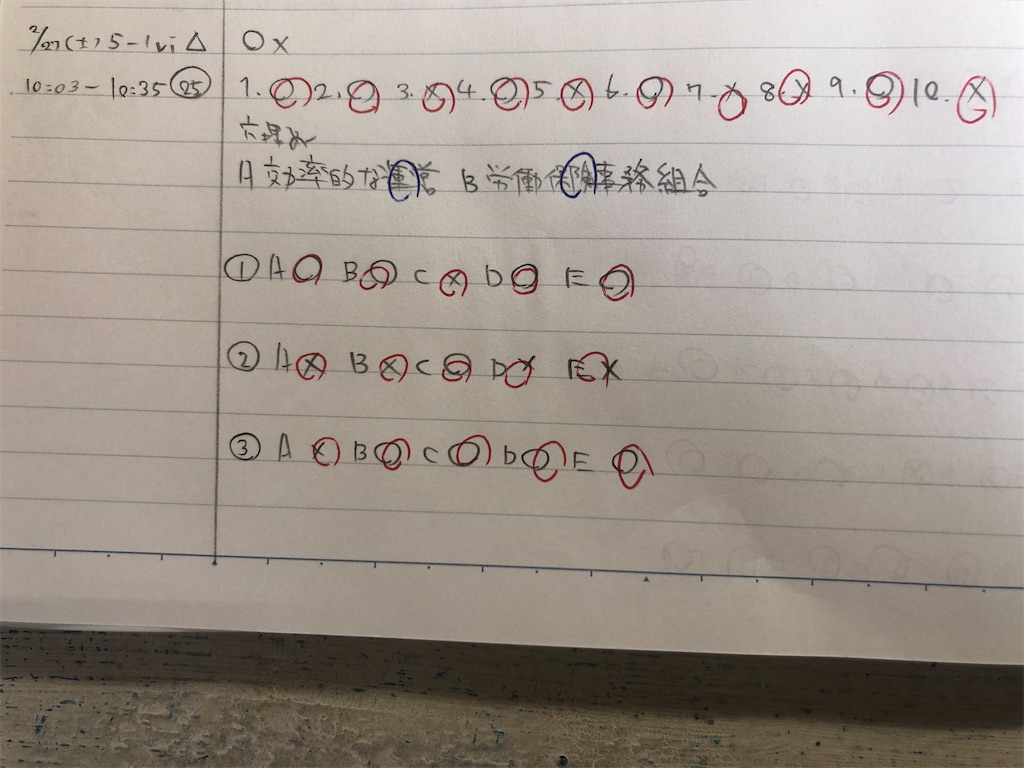 2/27(土) 5-1 vi △ ○×
10:03-10:35 25 1.○ 2.○ 3.× 4.○ 5.× 6.○ 7.× 8.× 9.○ 10.×
A 効率的な運営 B 労働保険事務組合
① A○ B○ C× D○ E○
② A× B× C○ D× E×
③ A× B○ C○ D○ E○